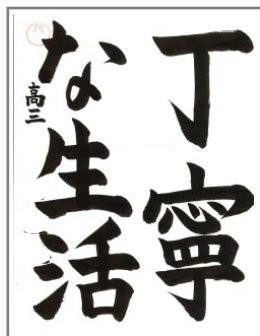 丁寧
な生活
高三